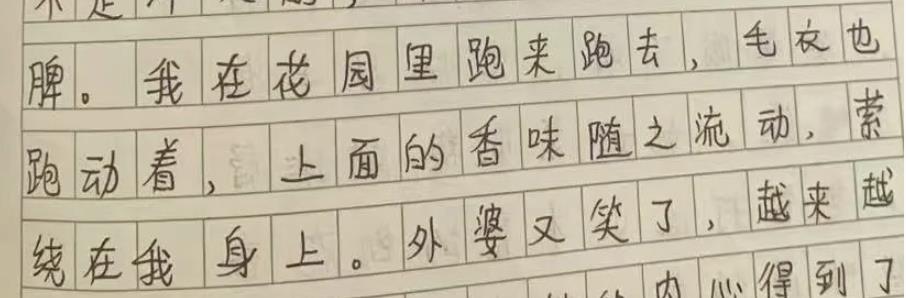 脾。我在花园里跑来跑去，毛衣也
跑动着，上面的香味随之流动，萦
绕在我身上。外婆又笑了，越来越
内心得到了